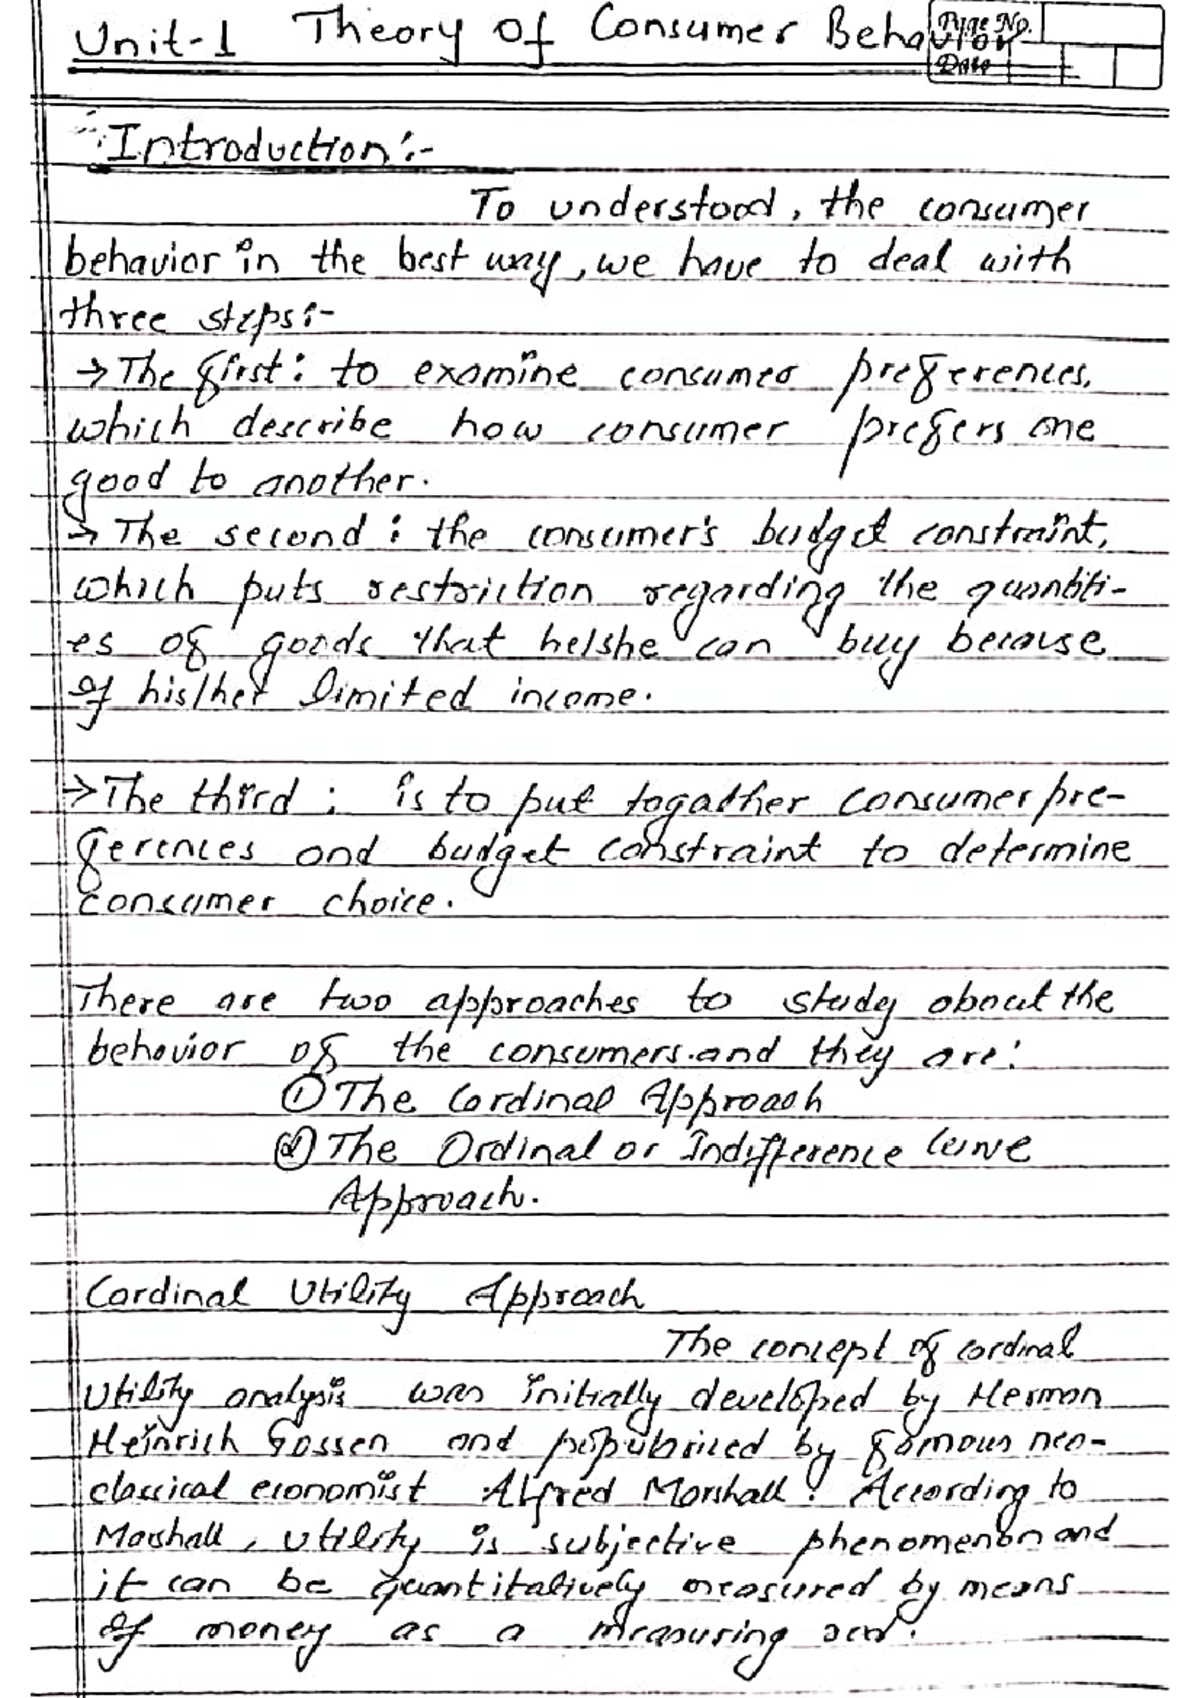 Unit-1 Theory of Consumer Behavior
Page No.
Date
Introduction:-
To understood, the consumer
behavior in the best way, we have to deal with
three steps:-
→ The first: to examine consumer preferences,
which describe how consumer prefers one
good to another.
→ The second: the consumer's budget constraint,
which puts restriction regarding the quantiti-
es of goods that he/she can buy because
of his/her limited income.
→ The third: is to put togather consumer pre-
ferences and budget constraint to determine
consumer choice.
There are two approaches to study about the
behavior of the consumers.and they are:
① The Cardinal Approach
② The Ordinal or Indifference Curve
Approach.
Cardinal Utility Approach
The concept of cardinal
Utility analysis was initially developed by Herman
Heinrich Gossen and by famous neo-
classical economist Alfred Marshall. According to
Marshall, utility is subjective phenomenon and
it can be quantitatively measured by means
of money as a measuring